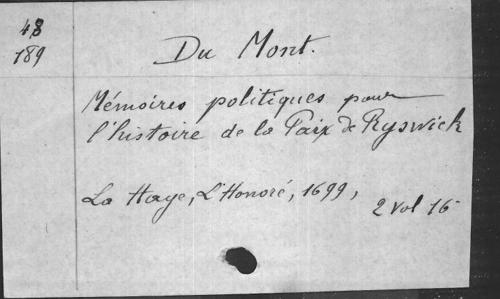 48
189
Du Mont.
Mémoires politiques pour
l'histoire de la Paix de Ryswick
La Haye, L'Honoré, 1699,
2 vol 16